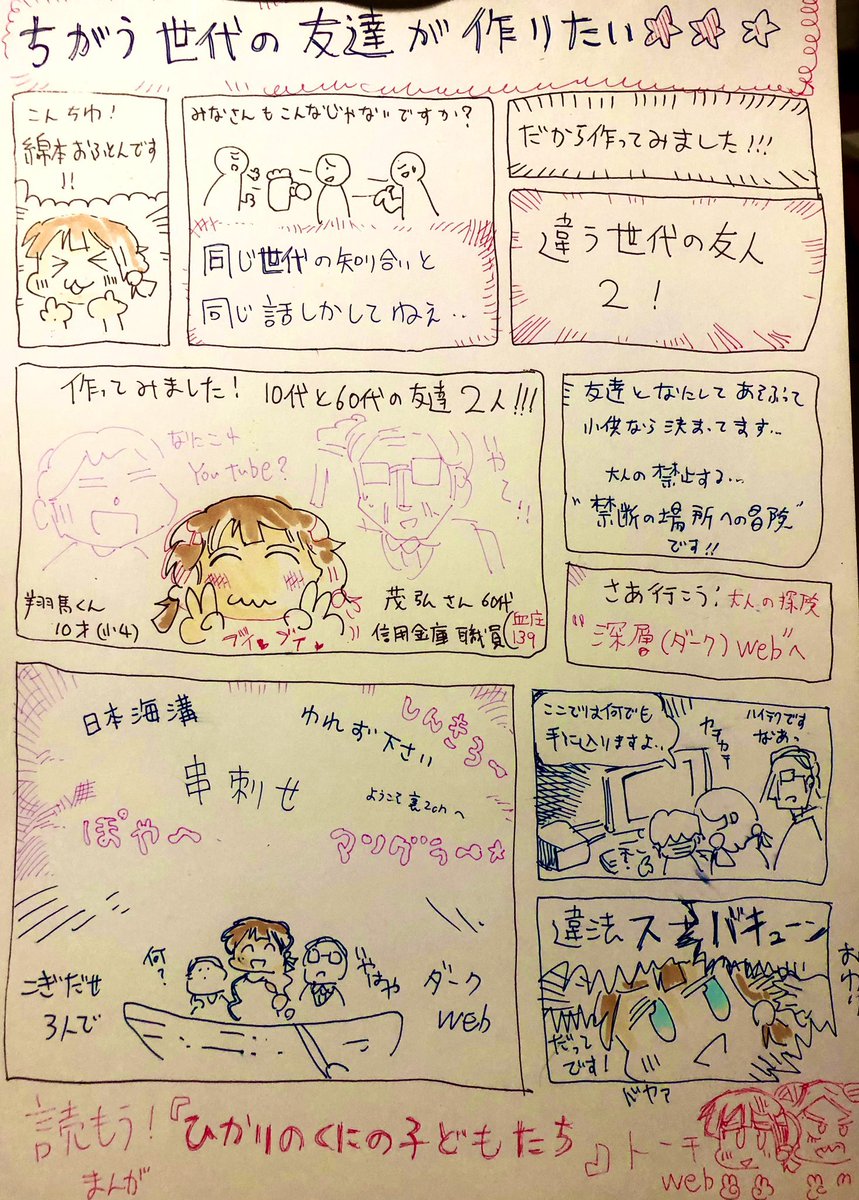 ちがう世代の友達が作りたい☆☆☆
こんちわ!
綿本おふとんです
!!
みなさんもこんなじゃないですか?
同じ世代の知り合いと
同じ話しかしてねえ..
だから作ってみました!!!
違う世代の友人
2!
作ってみました! 10代と60代の友達2人!!!
なにこれ
YouTube?
やて!!
翔馬くん
10才(小4)
ブイ♥ブイ♥
茂弘さん60代
信用金庫職員
(血圧
139
友達となにしてあそぶって
小供なら決まってます...
大人の禁止する...
"禁断の場所への冒険"
です!!
さあ行こう!大人の探険
"深層(ダーク)web"へ
日本海溝
われず下さい
しんきろ〜
串刺せ
ようこそ裏2chへ
ぽやへ
マングラー★
何?
いやはや
こぎだせ
3人で
ダーク
web
ここでは何でも
手に入りますよ..
カチカチ
ハイテクです
なあっ
違法スキバキューン
おわ!!
だって
です!
ドヤァ
読もう!『ひかりのくにの子どもたち』トーチ
まんが
web